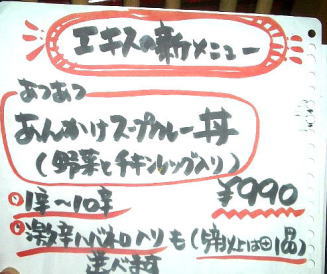 エキスの新メニュー
あつあつ
あんかけスープカレー丼
(野菜とチキンレッグ入り)
¥990
1辛〜10辛
激辛ハバネロ入りも
選べます